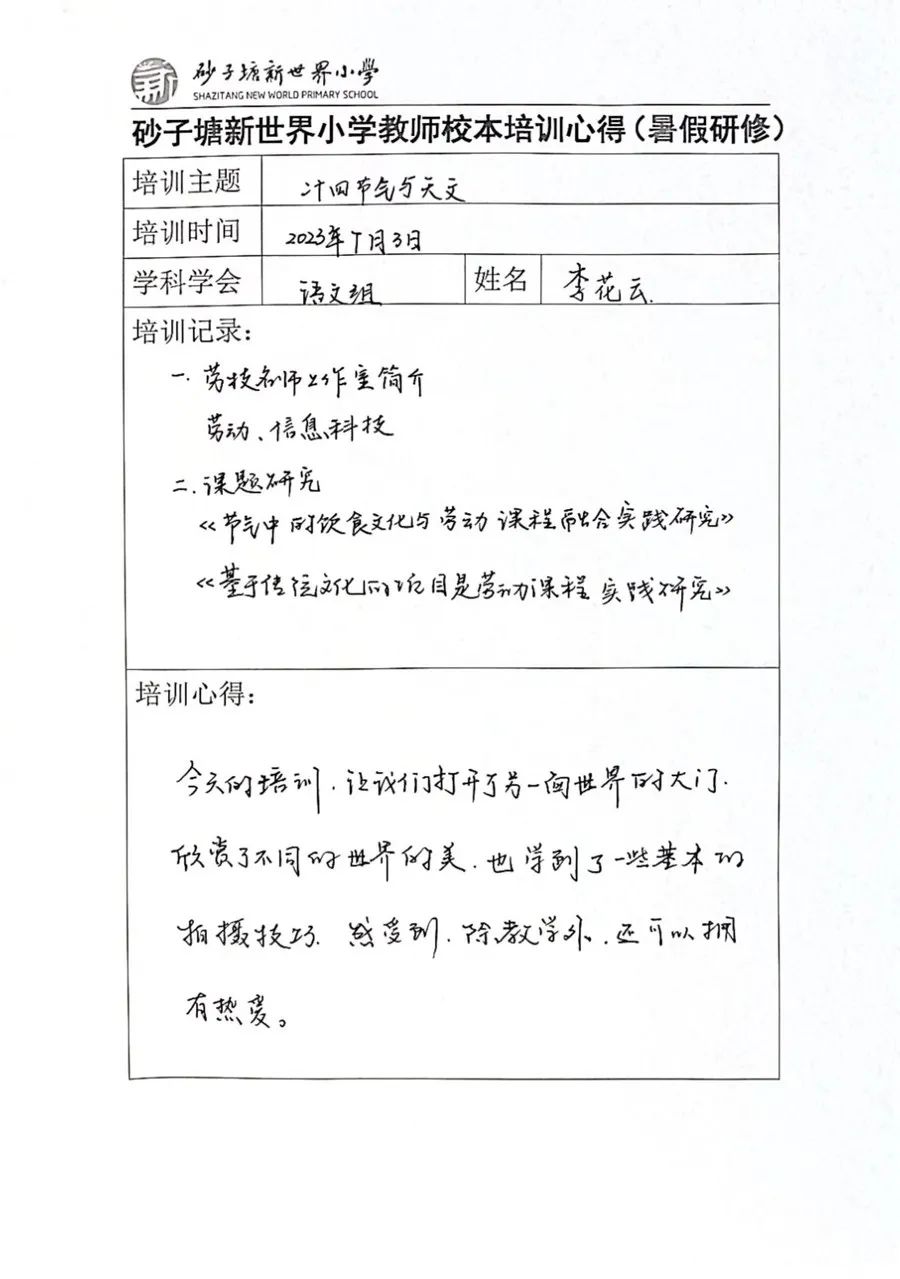 砂子塘新世界小學
SHAZITANG NEW WORLD PRIMARY SCHOOL
砂子塘新世界小学教师校本培训心得(暑假研修)
培训主题 廿四节气与天文
培训时间 2023年7月3日
学科学会 语文组 姓名 李花云.
培训记录:
一. 劳技名师工作室简介
劳动、信息科技
二. 课题研究
《节气中的饮食文化与劳动课程融合实践研究》
《基于传统文化的项目是劳动课程实践研究》
培训心得:
今天的培训, 让我们打开了另一向世界的大门.
欣赏了不同的世界的美. 也学到了一些基本的
拍摄技巧. 感受到, 除教学外, 还可以拥
有热爱。